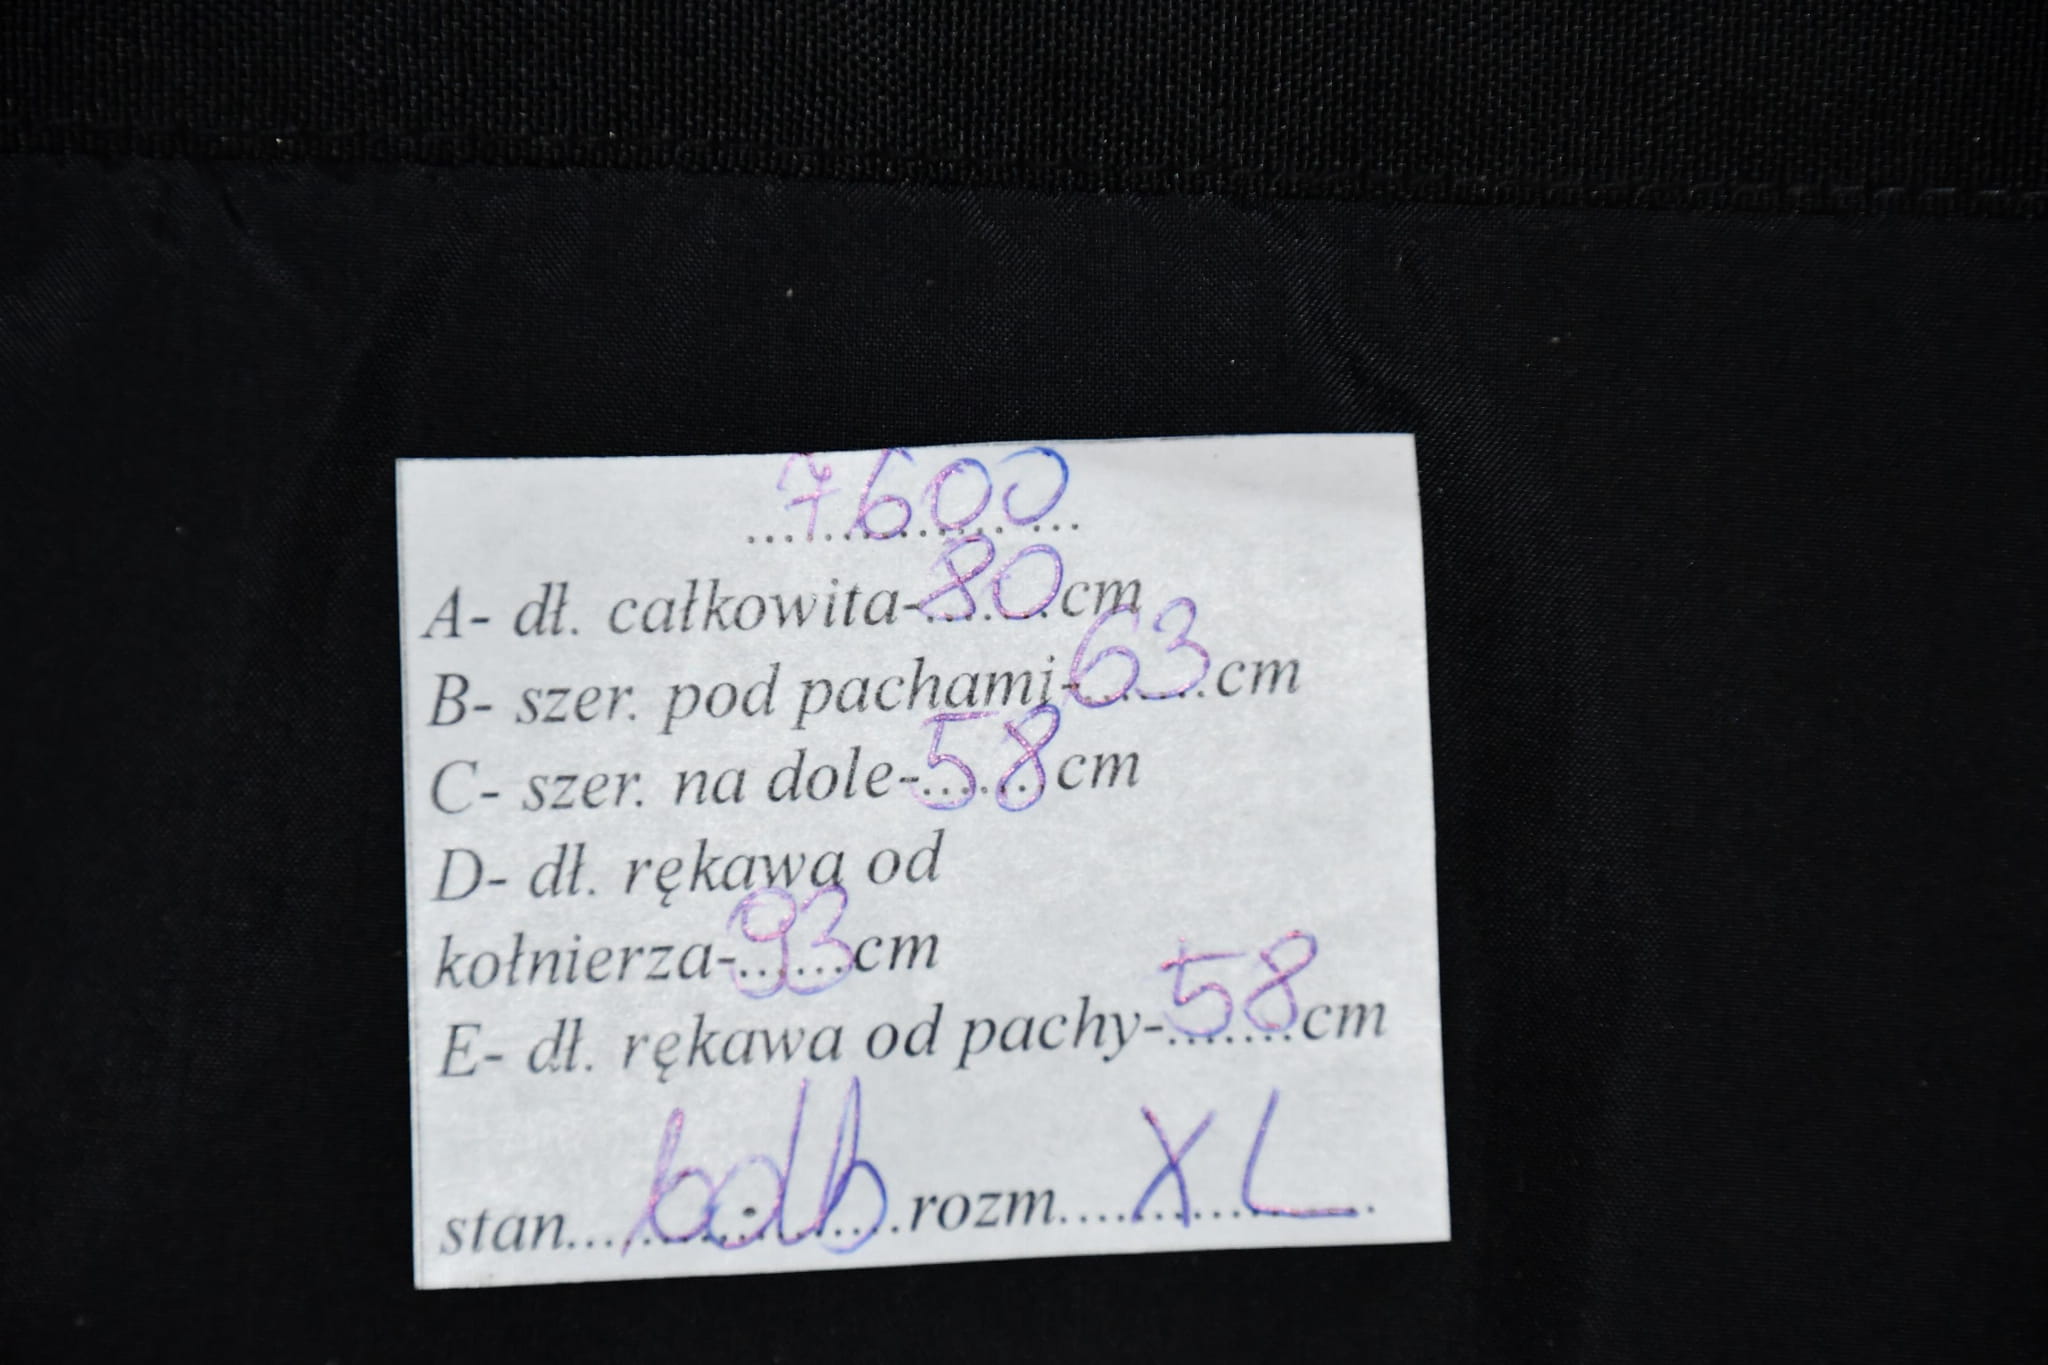 7600
A- dł. całkowita-80cm
B- szer. pod pachami-63cm
C- szer. na dole-58cm
D- dł. rękawa od
kołnierza-93cm
E- dł. rękawa od pachy-58cm
stan...bdb...rozm...XL...